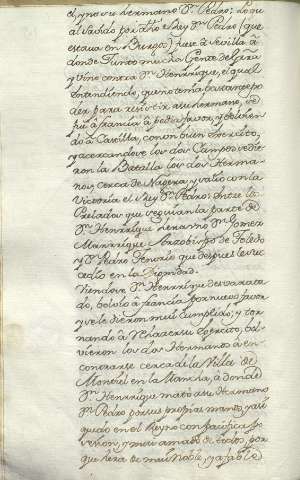 el, y no su hermano Dn. Pedro: lo qu
al sabido por dho Rey Dn. Pedro (que
estava en Burgos) fuè à Sevilla à
donde Juntò mucha Gente de Guerra
y vino contra Dn. Henrrique, el qual
entendiendo, que no tenia bastante po
der para resistir a su hermano, se
fuè à francia à pedir favor, y bolvien
do à Castilla, con un buen exercito,
y acercandose los dos Campos se diè
ron la Batalla los dos Herma-
nos, cerca de Nagera, y saliò con la
Victoria el Rey Dn. Pedro: Entre los
Prelados que seguian la parte de
Dn. Henrrique, heran Dn. Gomez
Manrrique Arzobispo de Toledo
y Dn. Pedro Tenorio que despues le suc
cediò en la Dignidad.
Viendose Dn. Henrrique desvarata
do, bolviò à francia por nuevo favor
y se le dieron mui Cumplido; y tor
nando à rehazer su Exercito, bol-
vieron los dos Hermanos à en-
contrarse cerca de la Villa de
Montiel en la Mancha, à donde
Dn. Henrrique matò a su Hermano
Dn. Pedro por su propria mano, y assi
quedò en el Reyno con pacifica po
session, y mui amado de todos, por
que hera de mui Noble, y afable